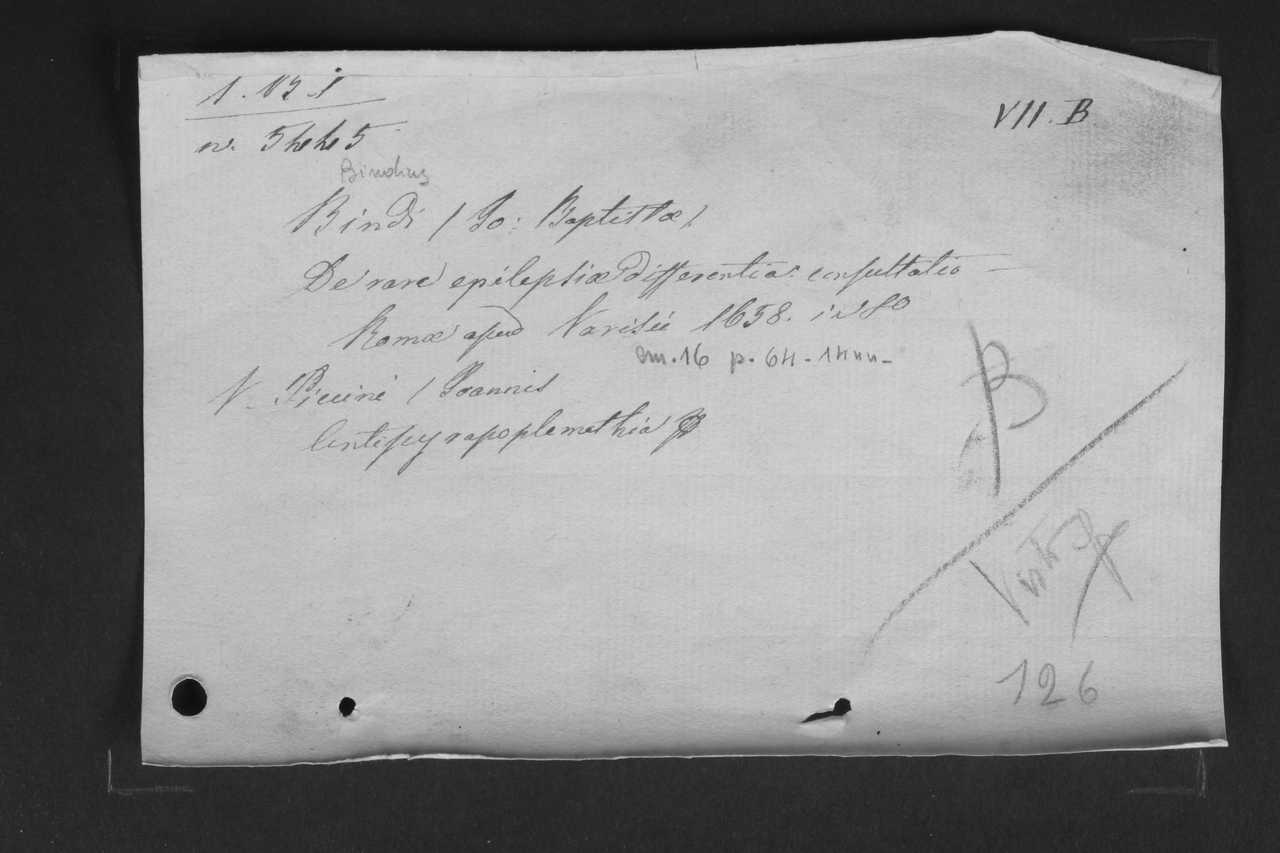 VII. B
n. 5445
Bindius
Bindi / Jo: Baptistæ /
De raræ epilepsiæ differentia: consultatio
Romæ apud Varisei 1658. in 8º
cm. 16 p. 64 - 14nn -
V. Piccini / Joannis
Antipyrapoplemathia
B
Visto
126